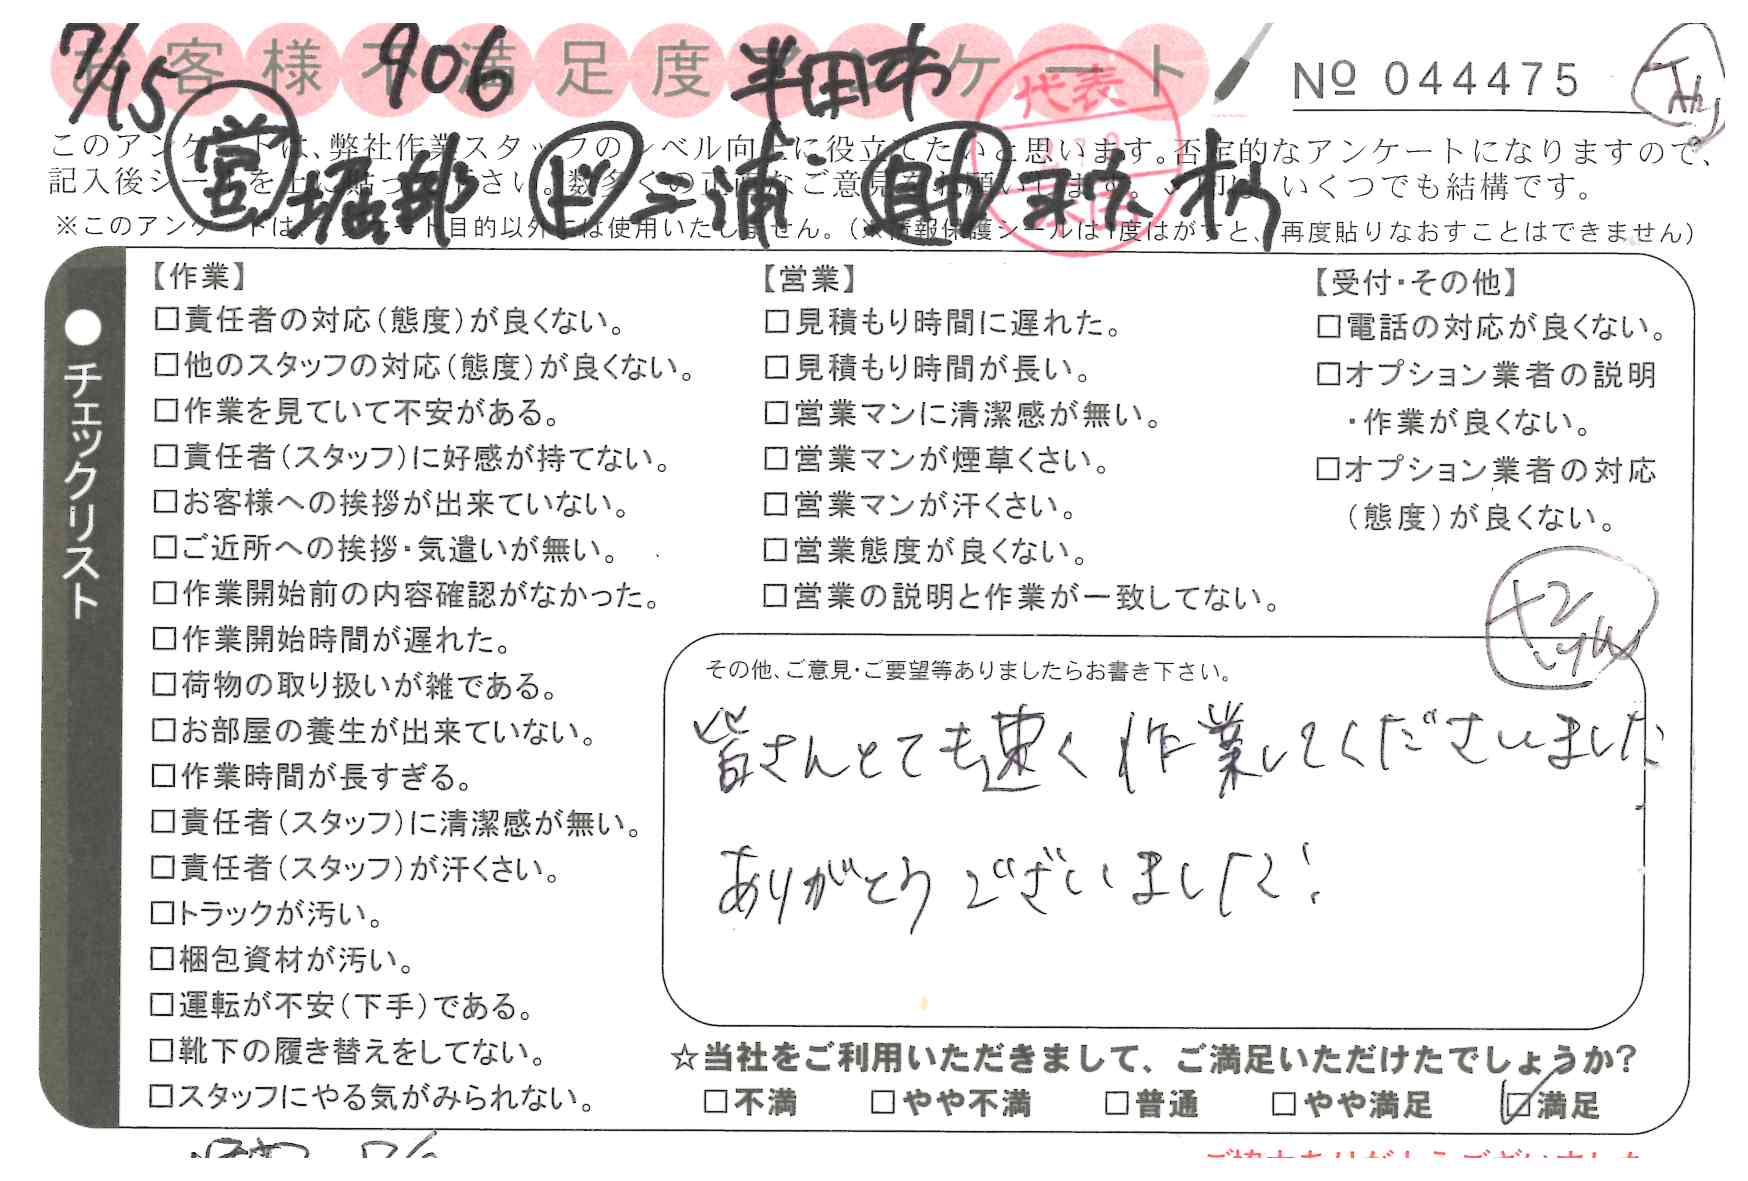 お客様不満足度アンケート
7/15 906 半田市
№ 044475
代表
営 堀部 ド 三浦 助
このアンケートは、弊社作業スタッフのレベル向上に役立てたいと思います。否定的なアンケートになりますので、
記入後シールを上に貼って下さい。数多くの正直なご意見をお願いします。いくつでも結構です。
※このアンケートは、アンケート目的以外には使用いたしません。(※情報保護シールは1度はがすと、再度貼りなおすことはできません)
●チェックリスト
【作業】
□責任者の対応(態度)が良くない。
□他のスタッフの対応(態度)が良くない。
□作業を見ていて不安がある。
□責任者(スタッフ)に好感が持てない。
□お客様への挨拶が出来ていない。
□ご近所への挨拶・気遣いが無い。
□作業開始前の内容確認がなかった。
□作業開始時間が遅れた。
□荷物の取り扱いが雑である。
□お部屋の養生が出来ていない。
□作業時間が長すぎる。
□責任者(スタッフ)に清潔感が無い。
□責任者(スタッフ)が汗くさい。
□トラックが汚い。
□梱包資材が汚い。
□運転が不安(下手)である。
□靴下の履き替えをしてない。
□スタッフにやる気がみられない。
【営業】
□見積もり時間に遅れた。
□見積もり時間が長い。
□営業マンに清潔感が無い。
□営業マンが煙草くさい。
□営業マンが汗くさい。
□営業態度が良くない。
□営業の説明と作業が一致してない。
【受付・その他】
□電話の対応が良くない。
□オプション業者の説明
・作業が良くない。
□オプション業者の対応
(態度)が良くない。
その他、ご意見・ご要望等ありましたらお書き下さい。
皆さんとても速く作業してくださいました
ありがとうございました!
☆当社をご利用いただきまして、ご満足いただけたでしょうか?
□不満 □やや不満 □普通 □やや満足 ☑満足
ご協力ありがとうございました